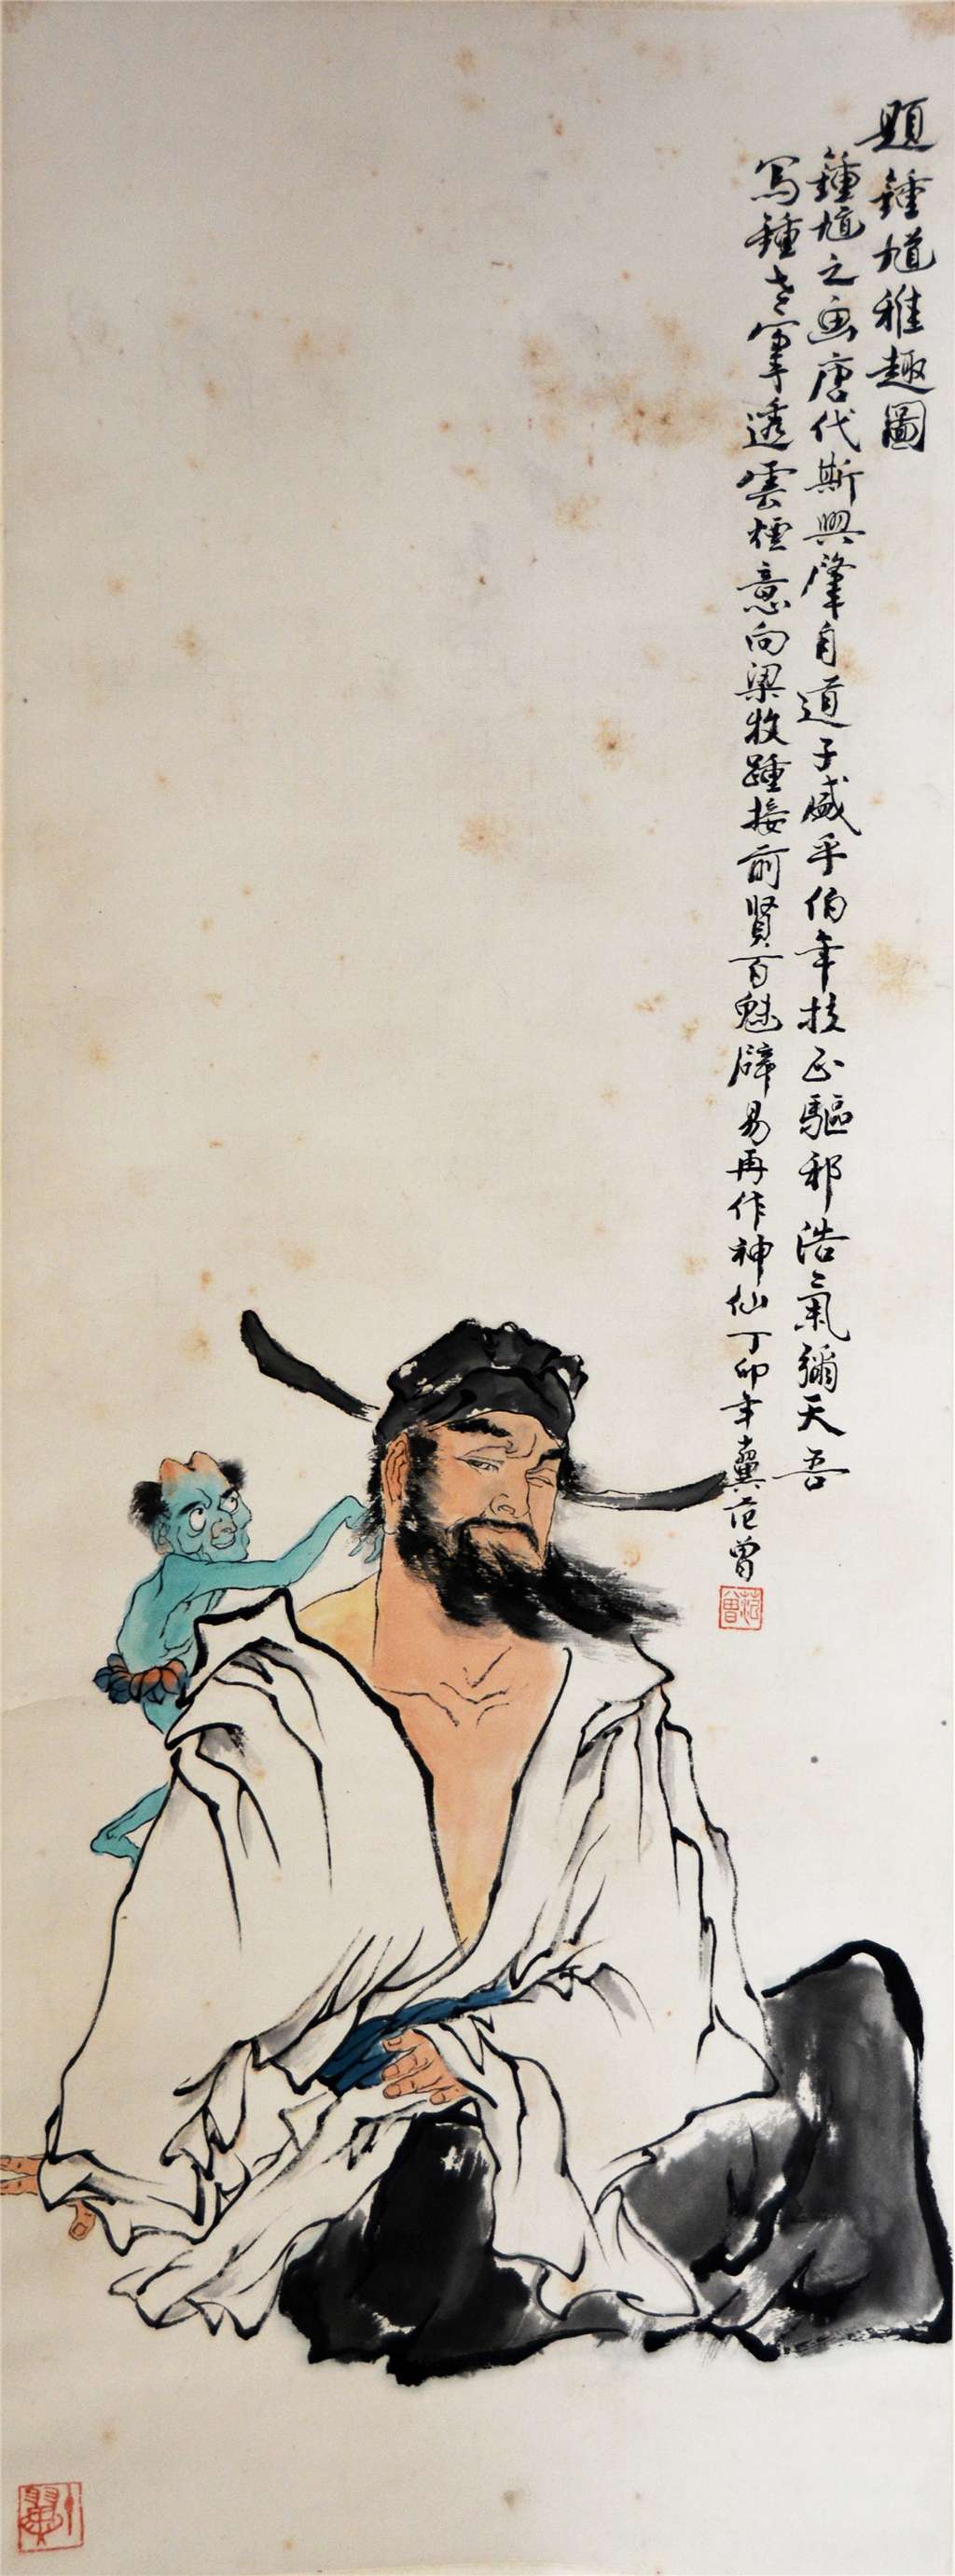 題鍾馗稚趣圖
鍾馗之画唐代斯興肇自道子盛乎伯年扶正驅邪浩氣彌天吾
寫鍾老軍透雲煙意向梁牧踵接前賢百魅辟易再作神仙丁卯年冀范曾
范曾